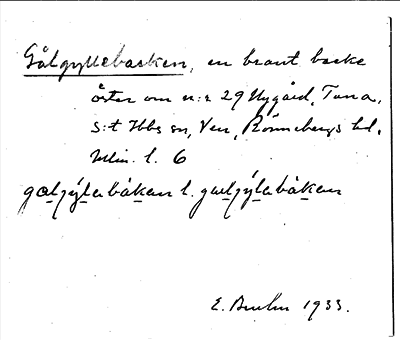 Gålgyllebacken, en brant backe
öster om n:r 29 Nygård, Tuna,
S:t Ibbs sn, Ven, Rönnebergs hd,
Mlm. l. 6
galjýlabákan l. galjýlabákan
E. Bruhn 1933.